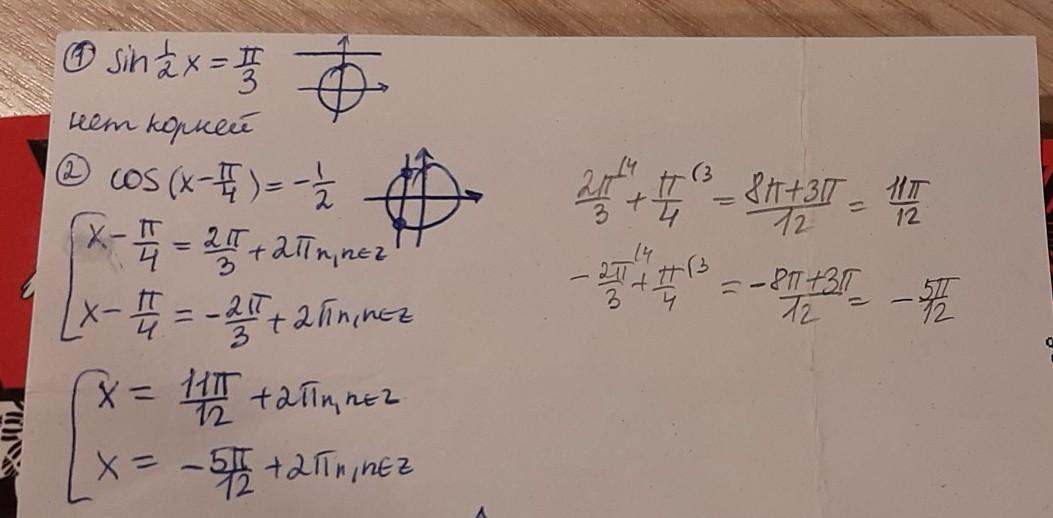 ① sin 1/2 x = π/3
нет корней
② cos (x - π/4) = - 1/2
x - π/4 = 2π/3 + 2πn, n∈z
x - π/4 = - 2π/3 + 2πn, n∈z
x = 11π/12 + 2πn, n∈z
x = - 5π/12 + 2πn, n∈z
2π/3 (4 + π/4 (3 = 8π+3π/12 = 11π/12
- 2π/3 (4 + π/4 (3 = -8π+3π/12 = - 5π/12